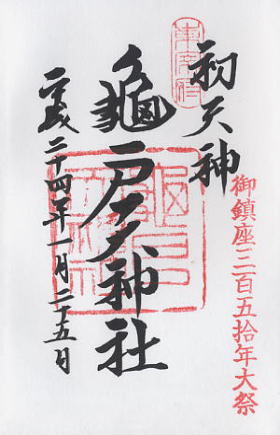 初天神
御鎮座三百五拾年大祭
龜戸天神社
平成二十四年一月二十五日